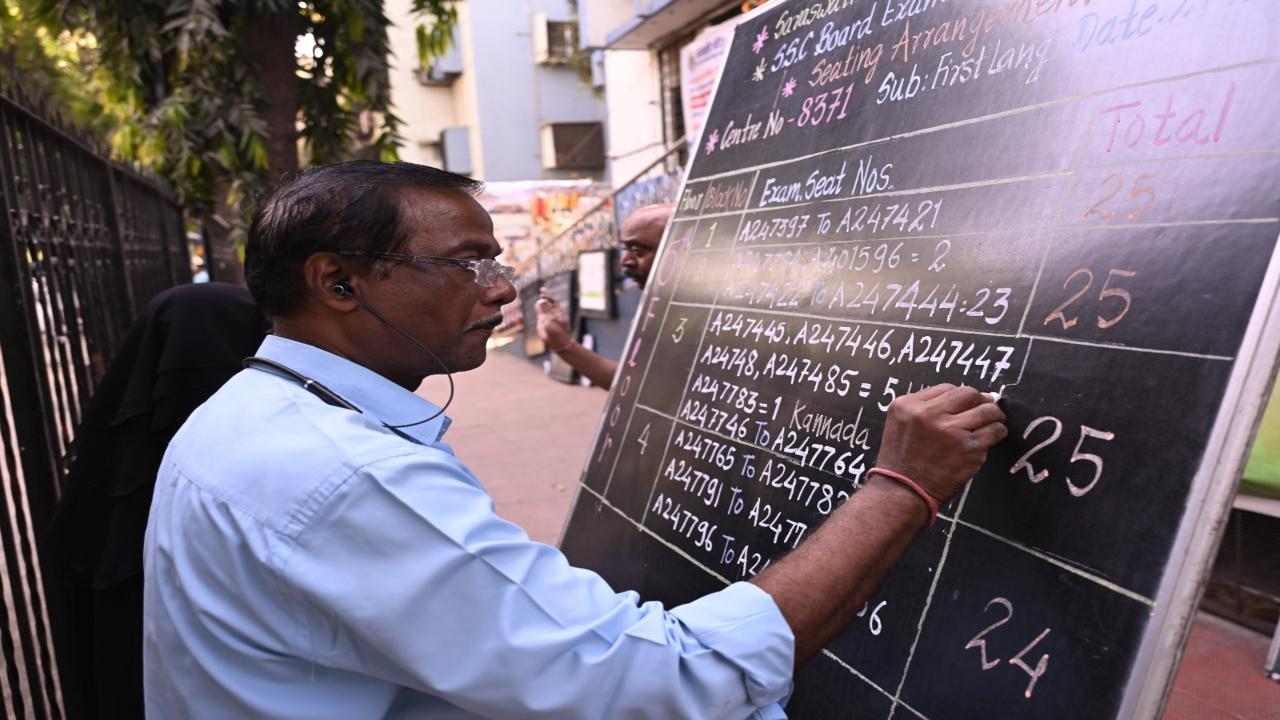 * Saraswati
* S.S.C Board Exam
* Seating Arrangement
Date:
* Centre No - 8371
Sub: First Lang
Floor
Block No
Exam. Seat Nos.
Total
1
A247397 To A247421
25
A401596 = 2
A247422 To A247444:23
25
3
A247445, A247446, A247447
A24748, A247485 = 5
A247783 = 1 Kannada
25
4
A247746 To A247764
A247765 To A247782
A247791 To A2477
A247796 To
24
Floor